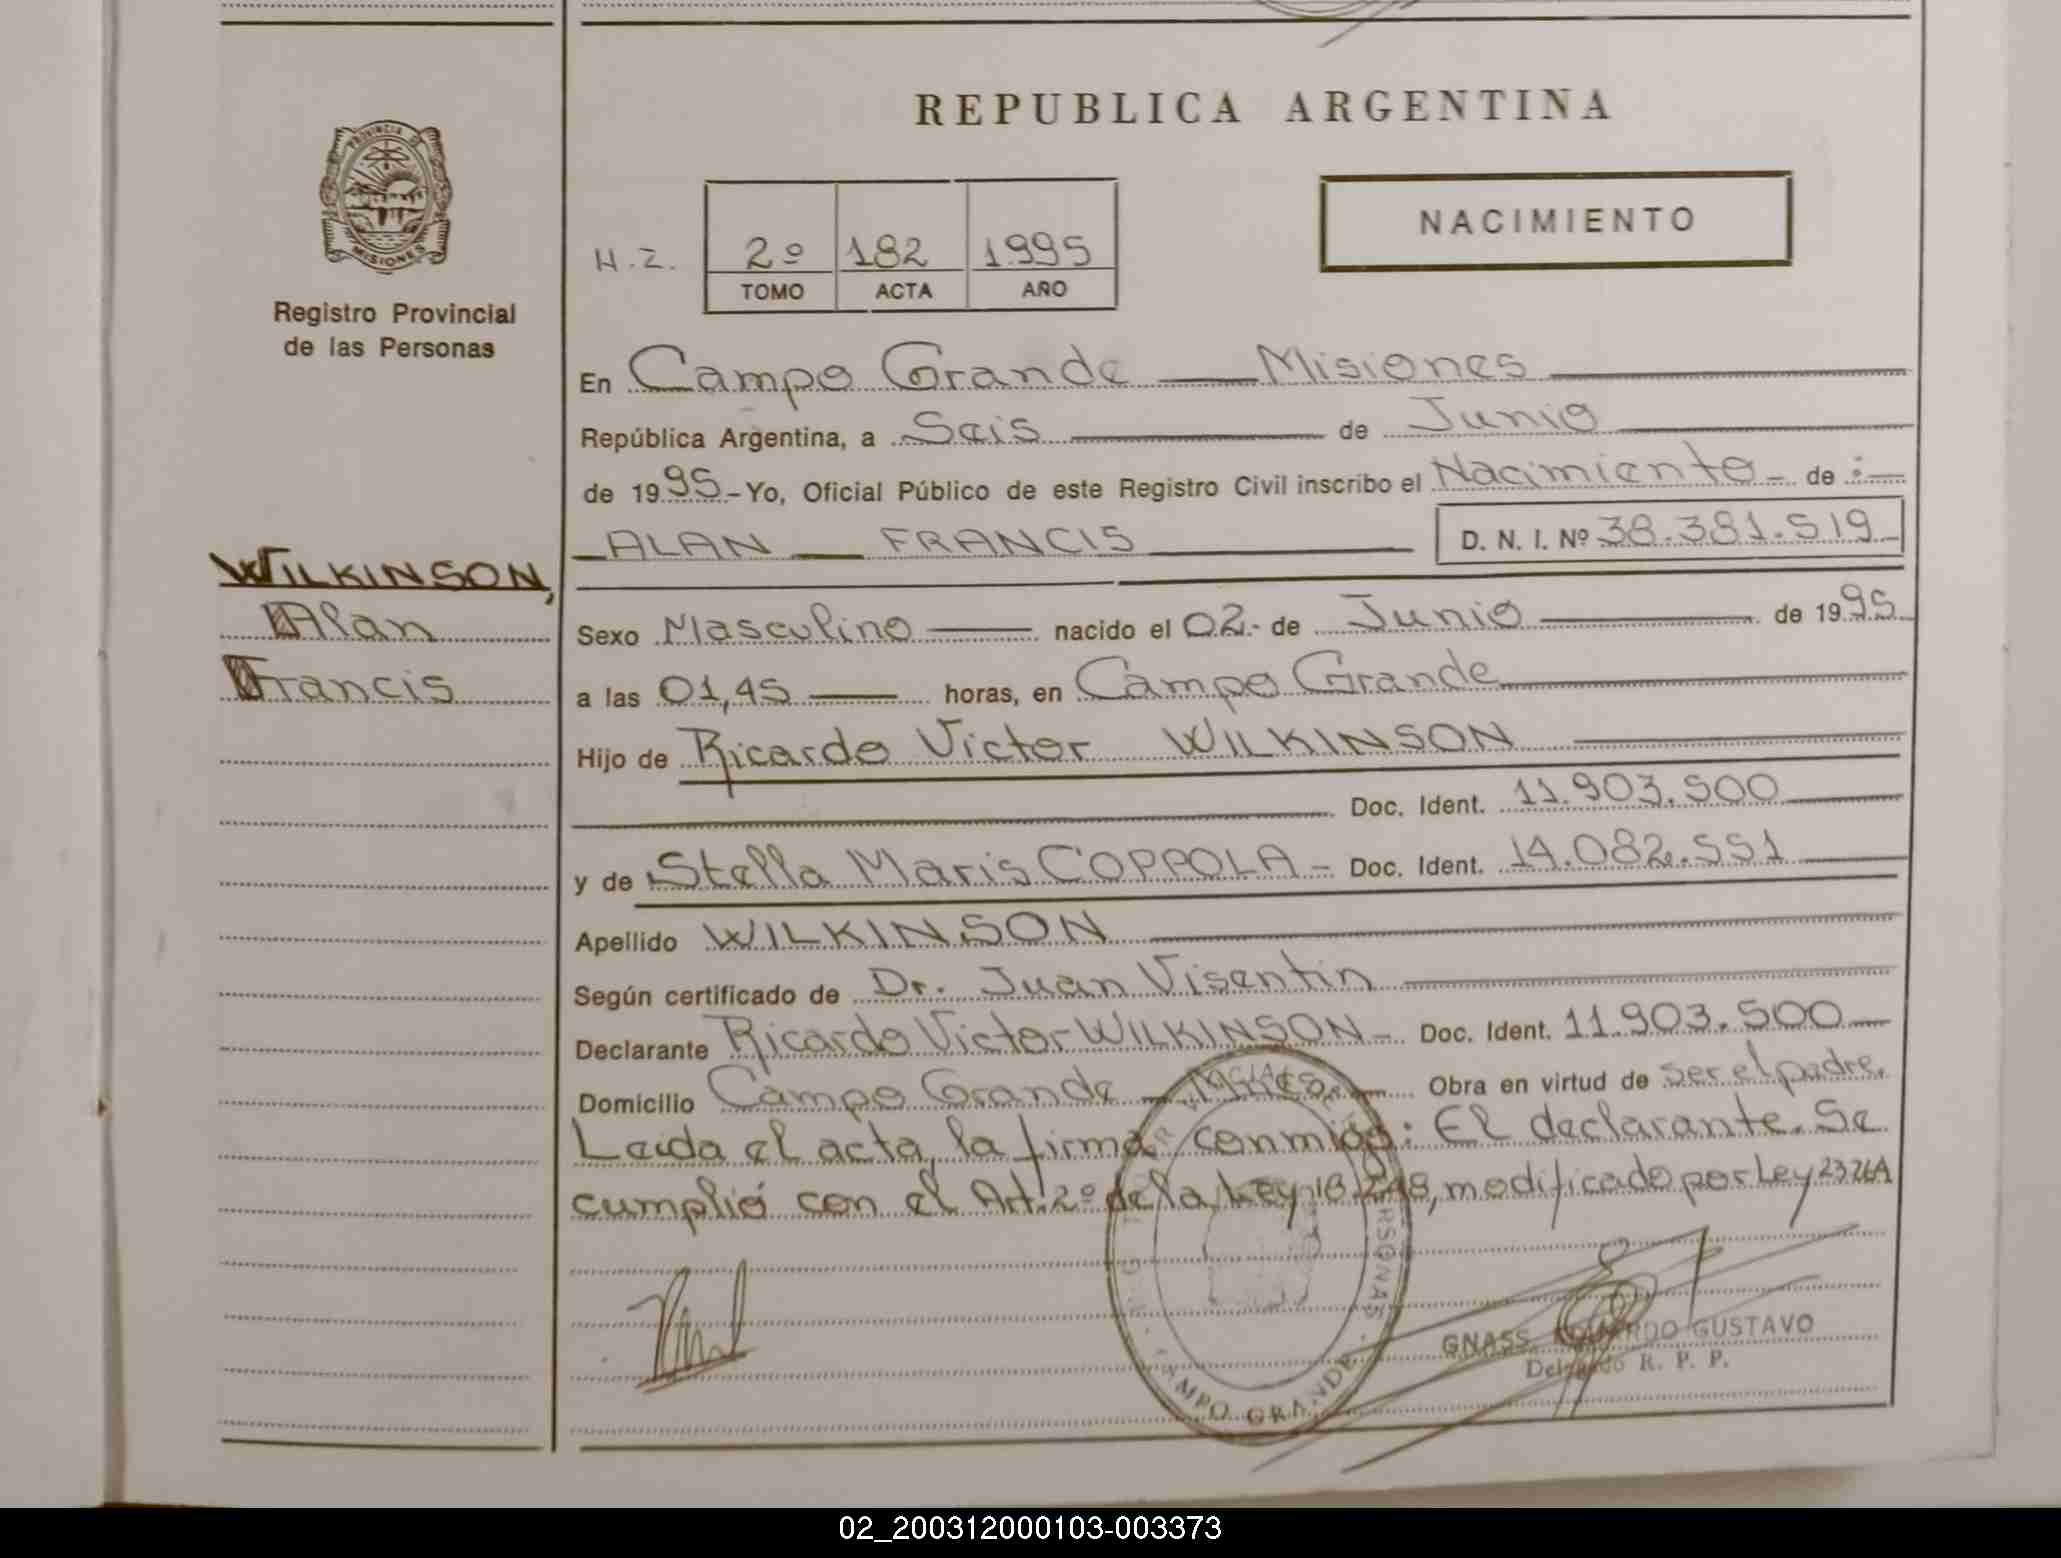 REPUBLICA ARGENTINA
PROVINCIA DE
MISIONES
Registro Provincial
de las Personas
NACIMIENTO
H.Z.
2º 182 1995
TOMO ACTA AÑO
En Campo Grande Misiones
República Argentina, a Seis de Junio
de 1995 - Yo, Oficial Público de este Registro Civil inscribo el Nacimiento - de :
ALAN FRANCIS D. N. I. Nº 38.381.519
WILKINSON,
Alan
Francis
Sexo Masculino nacido el 02 - de Junio de 1995
a las 01,45 horas, en Campo Grande
Hijo de Ricardo Victor WILKINSON
Doc. Ident. 11.903.500
y de Stella Maris COPPOLA - Doc. Ident. 14.082.551
Apellido WILKINSON
Según certificado de Dr. Juan Visentin
Declarante Ricardo Victor WILKINSON - Doc. Ident. 11.903.500
Domicilio Campo Grande Obra en virtud de ser el padre.
Leída el acta, la firma conmigo: El declarante. Se
cumplió con el Art. 2º de la Ley 18.248, modificado por Ley 23264
CAMPO GRANDE
GNASS EDUARDO GUSTAVO
Delegado R. P. P.
02_200312000103-003373